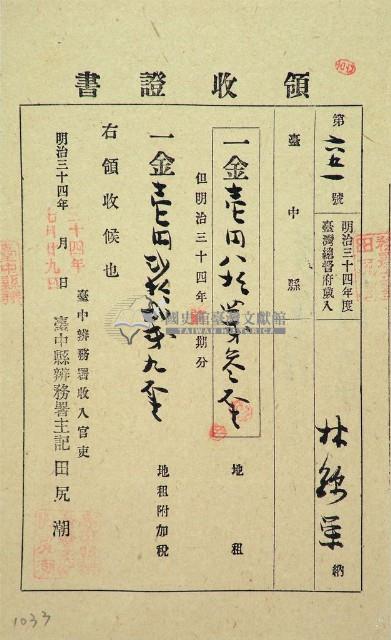 領收證書
第六五一號
明治三十四年度
臺灣總督府歲入
林錦 納
臺中縣
一金壱円八拾四錢参厘 地租
但明治三十四年 期分
一金壱円 九厘 地租附加税
右領收候也
明治三十四年 月 日
三十四年
七月廿九日
臺中辨務署收入官吏
臺中縣辨務署主記 田尻潮
國史館臺灣文獻館
TAIWAN HISTORICA
1033